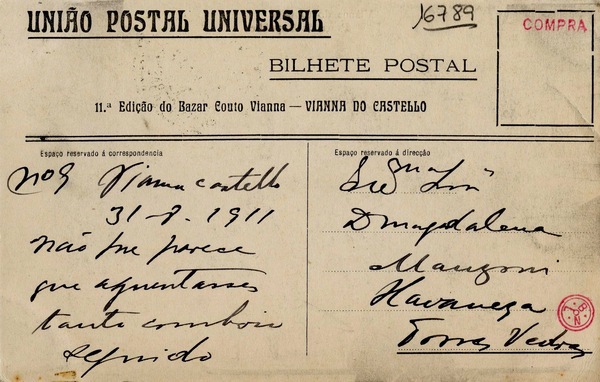 16789
UNIÃO POSTAL UNIVERSAL
COMPRA
BILHETE POSTAL
11.ª Edição do Bazar Couto Vianna — VIANNA DO CASTELLO
Espaço reservado á correspondencia
Vianna Castello
31-8-1911
não me parece
que aguentasses
tanto comboio
seguido
Espaço reservado á direcção
D Magdalena
Manzoni
Havaneza
Torres Vedras